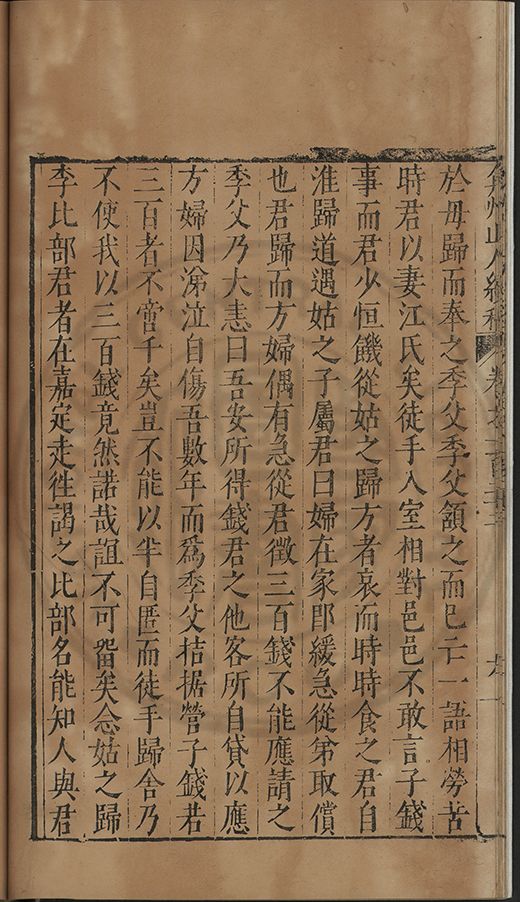 弇州山人續稿 卷之一百三十三 六
於毋歸而奉之季父季父頷之而巳亡一語相勞苦
時君以妻江氏矣徒手入室相對邑邑不敢言子錢
事而君少恒饑從姑之歸方者哀而時時食之君自
淮歸道遇姑之子屬君曰婦在家卽緩急從第取償
也君歸而方婦偶有急從君徵三百錢不能應請之
季父乃大恚曰吾安所得錢君之他客所自貸以應
方婦因涕泣自傷吾數年而爲季父拮据營子錢若
三百者不啻千矣豈不能以半自匿而徒手歸舍乃
不使我以三百錢竟然諾哉誼不可畱矣念姑之歸
李比部君者在嘉定走徃謁之比部名能知人與君